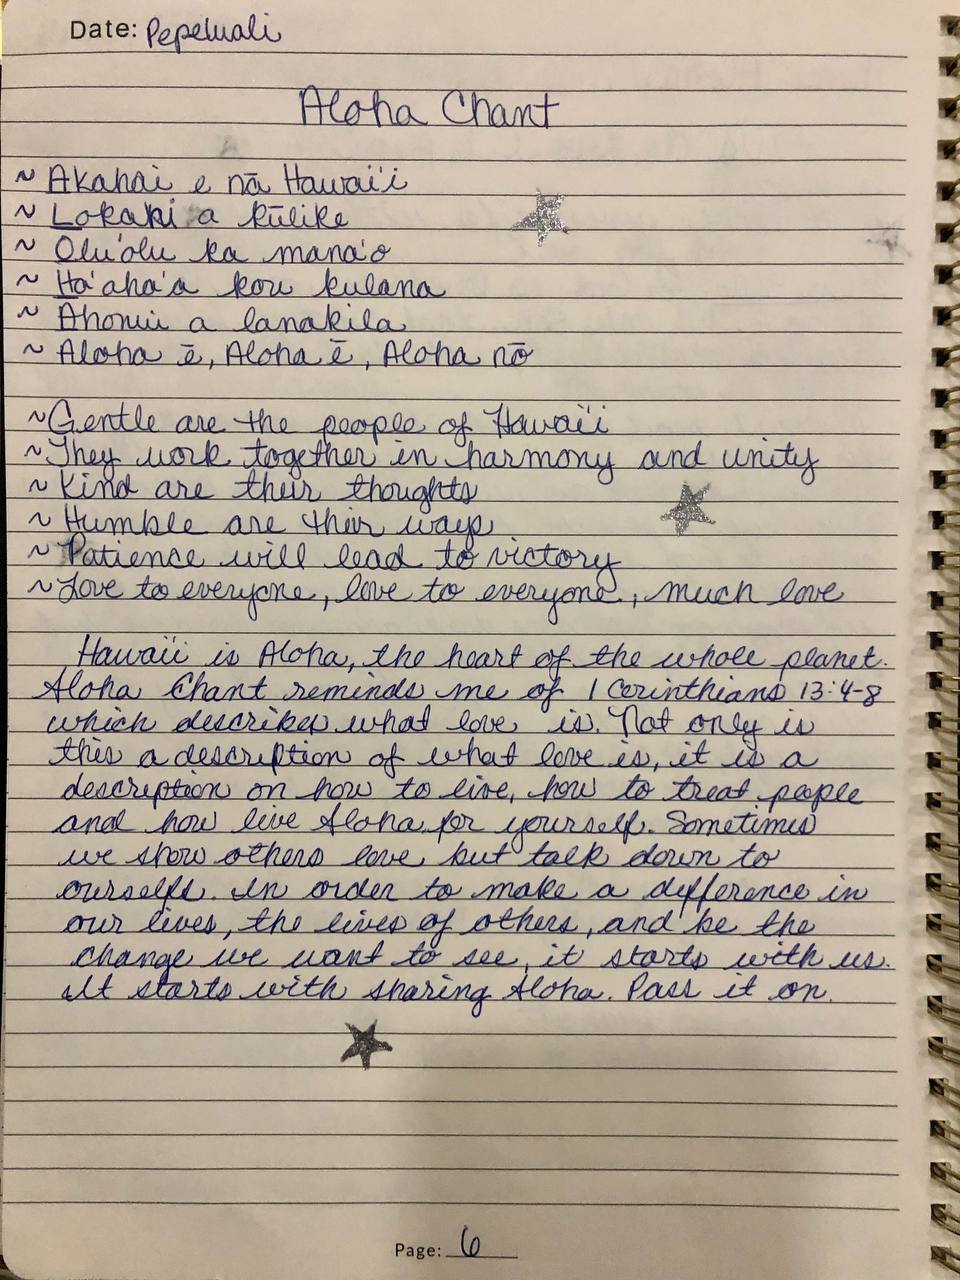 Date: Pepeluali
Aloha Chant
~ Akahai e nā Hawai'i
~ Lokahi a kūlike
~ Olu'olu ka mana'o
~ Ha'aha'a kou kulana
~ Ahonui a lanakila
~ Aloha ē, Aloha ē, Aloha nō
~Gentle are the people of Hawai'i
~They work together in harmony and unity
~ Kind are their thoughts
~ Humble are their ways
~ Patience will lead to victory
~Love to everyone, love to everyone, much love
Hawai'i is Aloha, the heart of the whole planet.
Aloha Chant reminds me of 1 Corinthians 13:4-8
which describes what love is. Not only is
this a description of what love is, it is a
description on how to live, how to treat people
and how live Aloha for yourself. Sometimes
we show others love but talk down to
ourselfs. In order to make a difference in
our lives, the lives of others, and be the
change we want to see, it starts with us.
It starts with sharing Aloha. Pass it on.
Page: 6